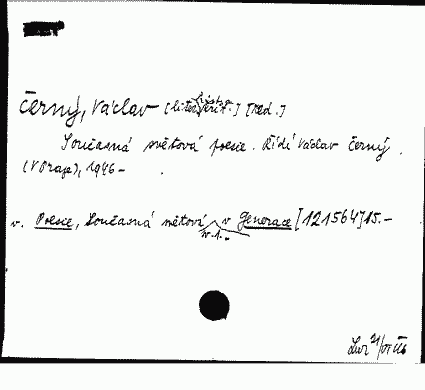 Černý, Václav [liter. histor.] [red.]
Současná světová poesie. Řídí Václav Černý.
(V Praze), 1946-
v. Poesie, Současná světová v Generace [121564] 15.-
w.1.-